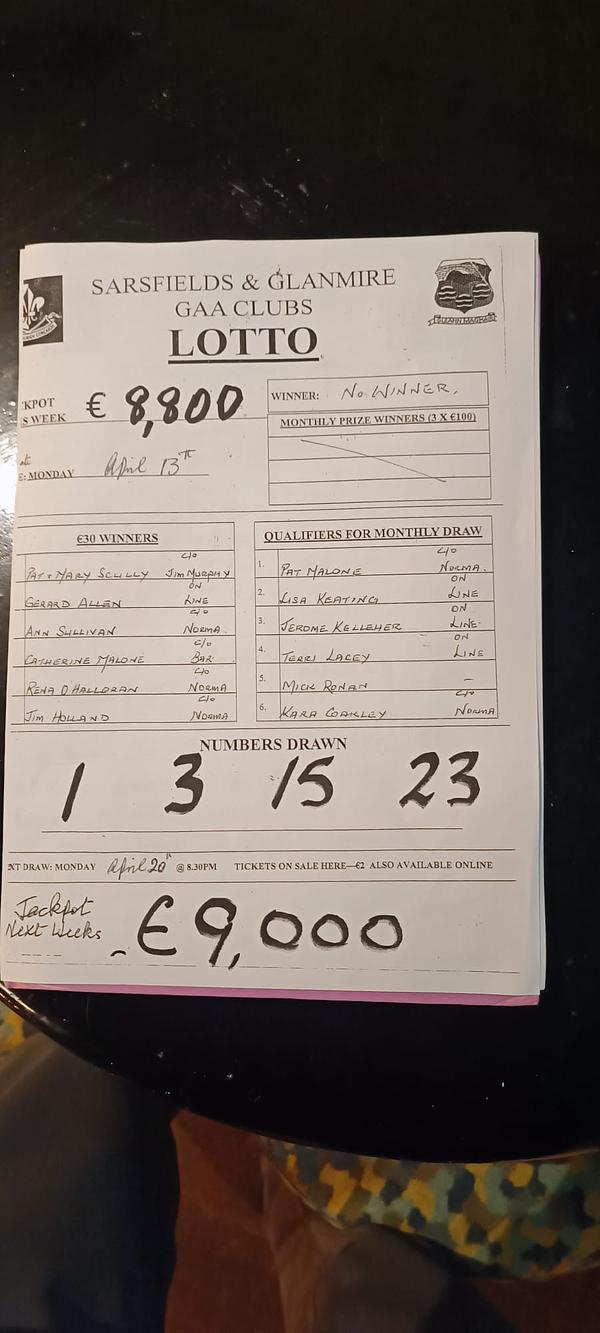 SARSFIELDS & GLANMIRE
GAA CLUBS
LOTTO
GLEANN MAGHAIR
KPOT
S WEEK € 8,800
WINNER: NO WINNER.
MONTHLY PRIZE WINNERS (3 X €100)
E: MONDAY April 13TH
€30 WINNERS
PAT & MARY SCULLY C/O JIM MURPHY
GERARD ALLEN ON LINE
ANN SULLIVAN C/O NORMA
CATHERINE MALONE C/O BAR
RENA O'HALLORAN C/O NORMA
JIM HOLLAND C/O NORMA
QUALIFIERS FOR MONTHLY DRAW
1. PAT MALONE C/O NORMA.
2. LISA KEATING ON LINE
3. JEROME KELLEHER ON LINE
4. TERRI LACEY ON LINE
5. MICK RONAN –
6. KARA COAKLEY C/O NORMA
NUMBERS DRAWN
1 3 15 23
XT DRAW: MONDAY April 20th @ 8.30PM TICKETS ON SALE HERE—€2 ALSO AVAILABLE ONLINE
Jackpot
Next Weeks €9,000